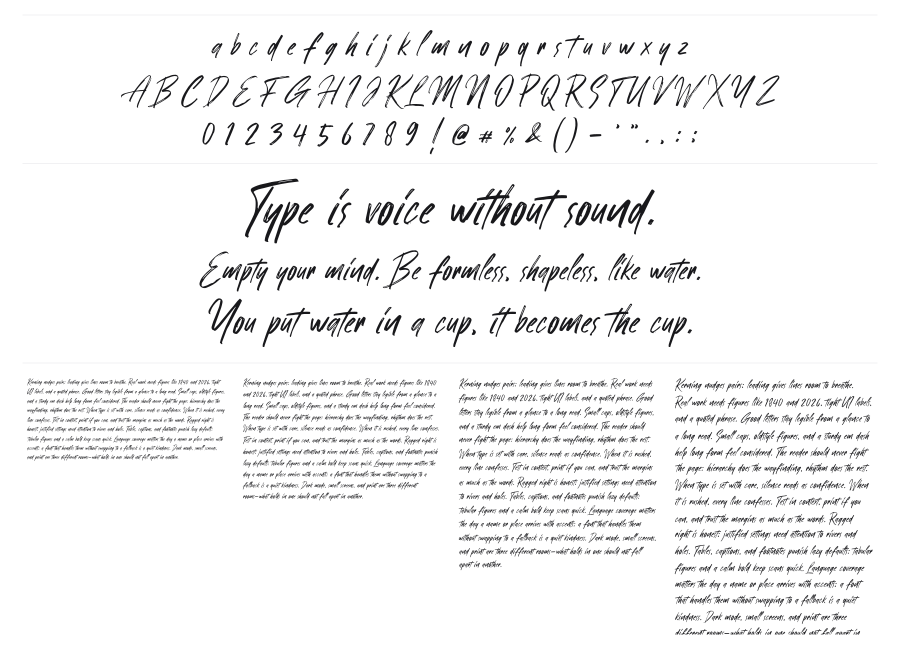 a b c d e f g h i j k l m n o p q r s t u v w x y z
A B C D E F G H I J K L M N O P Q R S T U V W X Y Z
0 1 2 3 4 5 6 7 8 9 ! @ # % & ( ) – ' " . , ; :
Type is voice without sound.
Empty your mind. Be formless, shapeless, like water.
You put water in a cup, it becomes the cup.
Kerning nudges pairs; leading gives lines room to breathe. Real work needs figures like 1040 and 2026, tight
UI label, and a quoted phrase. Good letters stay legible from a glance to a long read. Small caps, oldstyle figures,
and a sturdy em dash help long form feel considered. The reader should never fight the page; hierarchy does the
wayfinding, rhythm does the rest. When type is set with care, silence reads as confidence. When it is rushed, every
line confesses. Test in context, print if you can, and trust the margins as much as the words. Ragged right is
honest; justified settings need attention to rivers and holes. Tables, captions, and footnotes punish lazy defaults;
tabular figures and a calm bold keep scans quick. Language coverage matters the day a name or place arrives with
accents; a font that handles them without swapping to a fallback is a quiet kindness. Dark mode, small screens,
and print are three different rooms—what holds in one should not fall apart in another.
Kerning nudges pairs; leading gives lines room to breathe. Real work needs figures like 1040
and 2026, tight UI label, and a quoted phrase. Good letters stay legible from a glance to a
long read. Small caps, oldstyle figures, and a sturdy em dash help long form feel considered.
The reader should never fight the page; hierarchy does the wayfinding, rhythm does the rest.
When type is set with care, silence reads as confidence. When it is rushed, every line confesses.
Test in context, print if you can, and trust the margins as much as the words. Ragged right is
honest; justified settings need attention to rivers and holes. Tables, captions, and footnotes punish
lazy defaults; tabular figures and a calm bold keep scans quick. Language coverage matters the
day a name or place arrives with accents; a font that handles them without swapping to a
fallback is a quiet kindness. Dark mode, small screens, and print are three different
rooms—what holds in one should not fall apart in another.
Kerning nudges pairs; leading gives lines room to breathe. Real work needs
figures like 1040 and 2026, tight UI label, and a quoted phrase. Good
letters stay legible from a glance to a long read. Small caps, oldstyle figures,
and a sturdy em dash help long form feel considered. The reader should
never fight the page; hierarchy does the wayfinding, rhythm does the rest.
When type is set with care, silence reads as confidence. When it is rushed,
every line confesses. Test in context, print if you can, and trust the margins
as much as the words. Ragged right is honest; justified settings need attention
to rivers and holes. Tables, captions, and footnotes punish lazy defaults;
tabular figures and a calm bold keep scans quick. Language coverage matters
the day a name or place arrives with accents; a font that handles them
without swapping to a fallback is a quiet kindness. Dark mode, small screens,
and print are three different rooms—what holds in one should not fall
apart in another.
Kerning nudges pairs; leading gives lines room to breathe.
Real work needs figures like 1040 and 2026, tight UI label,
and a quoted phrase. Good letters stay legible from a glance to
a long read. Small caps, oldstyle figures, and a sturdy em dash
help long form feel considered. The reader should never fight
the page; hierarchy does the wayfinding, rhythm does the rest.
When type is set with care, silence reads as confidence. When
it is rushed, every line confesses. Test in context, print if you
can, and trust the margins as much as the words. Ragged
right is honest; justified settings need attention to rivers and
holes. Tables, captions, and footnotes punish lazy defaults; tabular
figures and a calm bold keep scans quick. Language coverage
matters the day a name or place arrives with accents; a font
that handles them without swapping to a fallback is a quiet
kindness. Dark mode, small screens, and print are three
different rooms—what holds in one should not fall apart in